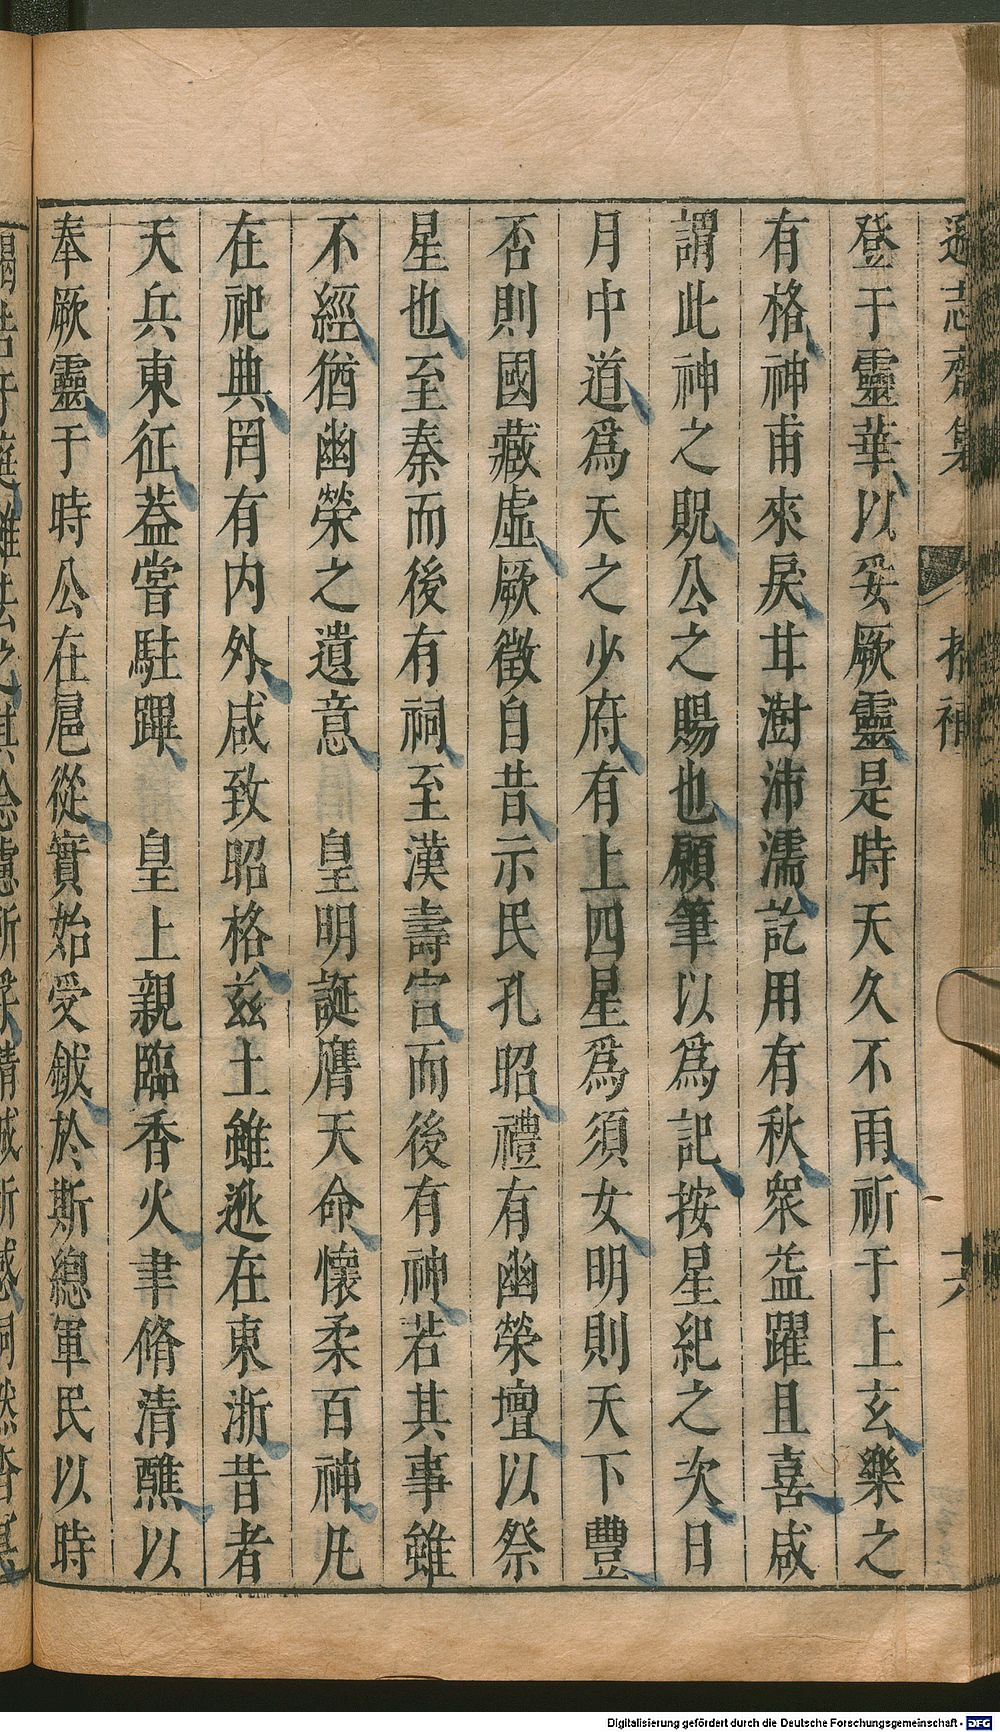 遜志齋集
拾補
六
登于靈華以妥厥靈是時天久不雨祈于上玄樂之
有格神甫來戾甘澍沛濡訖用有秋衆益躍且喜咸
謂此神之貺公之賜也願筆以爲記按星紀之次日
月中道爲天之少府有上四星爲須女明則天下豐
否則國藏虛厥徵自昔示民孔昭禮有幽榮壇以祭
星也至秦而後有祠至漢壽宮而後有神若其事雖
不經猶幽榮之遺意皇明誕膺天命懷柔百神凡
在祀典罔有内外咸致昭格兹土雖遐在東浙昔者
天兵東征葢嘗駐蹕皇上親臨香火聿脩清醮以
奉厥靈于時公在扈從實始受鉞於斯總軍民以時
Digitalisierung gefördert durch die Deutsche Forschungsgemeinschaft - DFG